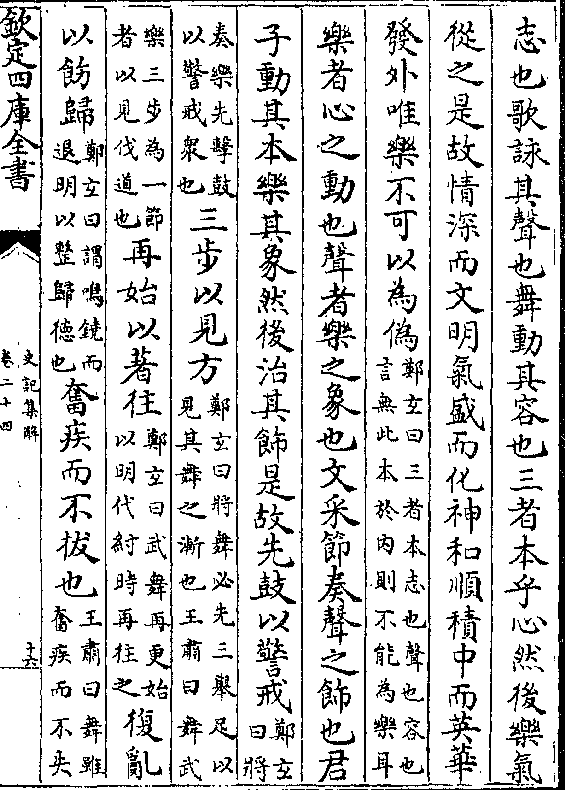 志也歌詠其聲也舞動其容也三者本乎心然後樂氣
從之是故情深而文明氣盛而化神和順積中而英華
發外唯樂不可以為偽鄭玄曰三者本志也聲也容也言無此本於內則不能為樂耳
樂者心之動也聲者樂之象也文采節奏聲之飾也君
子動其本樂其象然後治其飾是故先鼓以警戒鄭玄曰將
奏樂先擊鼓以警戒衆也三步以見方鄭玄曰將舞必先三舉足以見其舞之漸也王肅曰舞武
樂三步為一節者以見伐道也再始以著往鄭玄曰武舞再更始以明代紂時再往之復亂
以飭歸鄭玄曰謂鳴鐃而退明以整歸德也奮疾而不拔也王肅曰舞雖奮疾而不失
欽定四庫全書
史記集解
卷二十四
十六